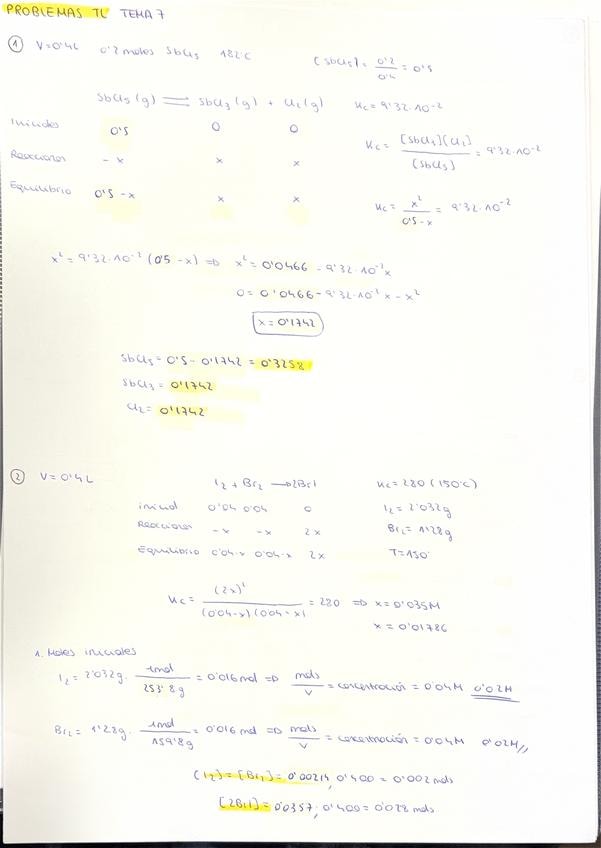 PROBLEMAS TL TEMA 7
① V=0'4L 0'2 moles SbCl5 182°C [SbCl5] = 0'2/0'4 = 0'5
SbCl5 (g) ⇌ SbCl3 (g) + Cl2 (g) Kc = 9'32·10⁻²
Iniciales 0'5 0 0
Kc = [SbCl3][Cl2]/[SbCl5] = 9'32·10⁻²
Reacciones -x x x
Equilibrio 0'5-x x x
Kc = x²/0'5-x = 9'32·10⁻²
x² = 9'32·10⁻² (0'5-x) ⇒ x² = 0'0466 - 9'32·10⁻²x
0 = 0'0466 - 9'32·10⁻² x - x²
x = 0'1742
SbCl5 = 0'5 - 0'1742 = 0'3258
SbCl3 = 0'1742
Cl2 = 0'1742
② V = 0'4L I2 + Br2 → 2BrI Kc = 280 (150°C)
inicial 0'04 0'04 0 I2 = 2'032g
Reacciones -x -x 2x Br2 = 1'28g
Equilibrio 0'04-x 0'04-x 2x T=150°
Kc = (2x)²/(0'04-x)(0'04-x) = 280 ⇒ x = 0'035M
x = 0'01786
1. Moles iniciales
I2 = 2'032g · 1mol/253'8g = 0'016 mol ⇒ mols/V = concentración = 0'04M 0'02M
Br2 = 1'28g · 1mol/159'8g = 0'016 mol ⇒ mols/V = concentración = 0'04M 0'02M//
[I2] = [Br2] = 0'00214 · 0'400 = 0'002 mols
[2BrI] = 0'0357 · 0'400 = 0'028 mols